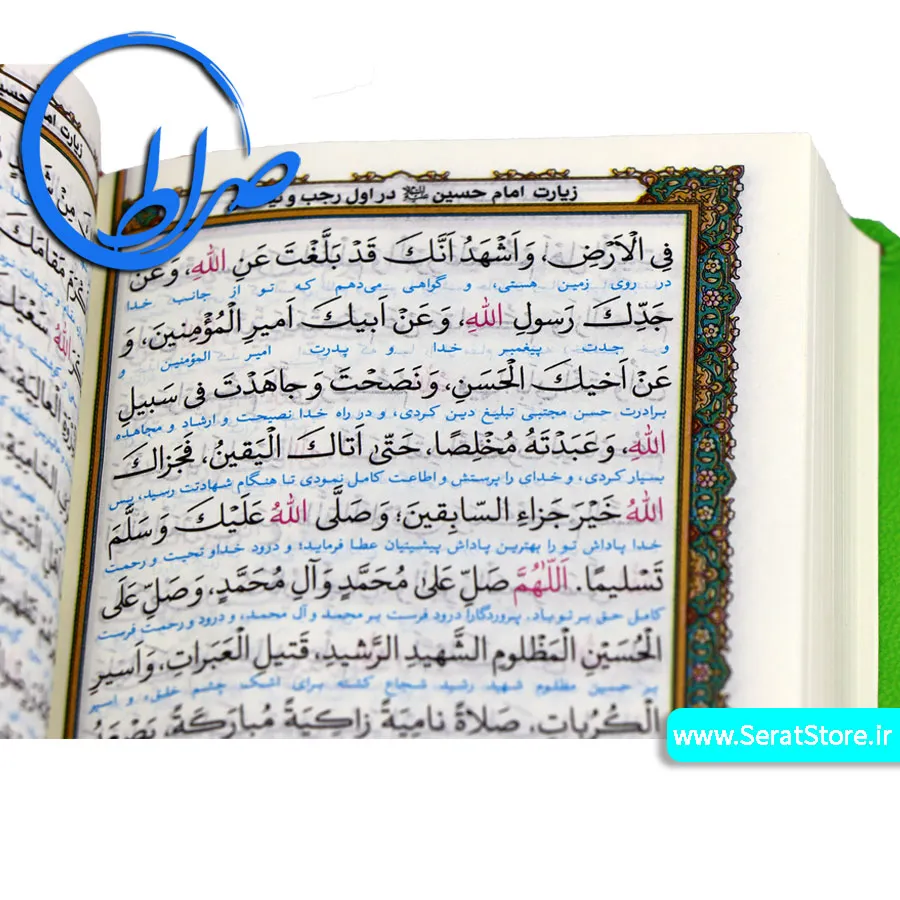 صراط
زیارت امام حسین علیه‌السلام در اول رجب و
فِي الْاَرْضِ، وَاَشْهَدُ اَنَّكَ قَدْ بَلَّغْتَ عَنِ اللهِ، وَعَنْ
در روی زمین هستی، و گواهی می‌دهم که تو از جانب خدا
جَدِّكَ رَسُولِ اللهِ، وَعَنْ اَبيكَ اَميرِ الْمُؤْمِنينَ، وَ
و جدت پیغمبر خدا و پدرت امیر المؤمنین و
عَنْ اَخيكَ الْحَسَنِ، وَنَصَحْتَ وَجاهَدْتَ في سَبيلِ
برادرت حسن مجتبی تبلیغ دین کردی، و در راه خدا نصیحت و ارشاد و مجاهده
اللهِ، وَعَبَدْتَهُ مُخْلِصًا، حَتّى اَتاكَ الْيَقينُ، فَجَزاكَ
بسیار کردی، و خدای را پرستش و اطاعت کامل نمودی تا هنگام شهادتت رسید، پس
اللهُ خَيْرَ جَزاءِ السّابِقينَ؛ وَصَلَّى اللهُ عَلَيْكَ وَسَلَّمَ
خدا پاداش تو را بهترین پاداش پیشینیان عطا فرماید؛ و درود خدا و تحیت و رحمت
تَسْليمًا. اَللّٰهُمَّ صَلِّ عَلى مُحَمَّدٍ وَآلِ مُحَمَّدٍ، وَصَلِّ عَلَى
کامل حق بر تو باد. پروردگارا درود فرست بر محمد و آل محمد، و درود و رحمت فرست
الْحُسَيْنِ الْمَظْلومِ الشَّهيدِ الرَّشيدِ، قَتيلِ الْعَبَراتِ، وَاَسيرِ
بر حسین مظلوم شهید رشید شجاع کشته برای اشک چشم خلق، و اسیر
الْكُرُباتِ، صَلاةً نامِيَةً زاكِيَةً مُبارَكَةً، يَصْعَدُ
www.SeratStore.ir